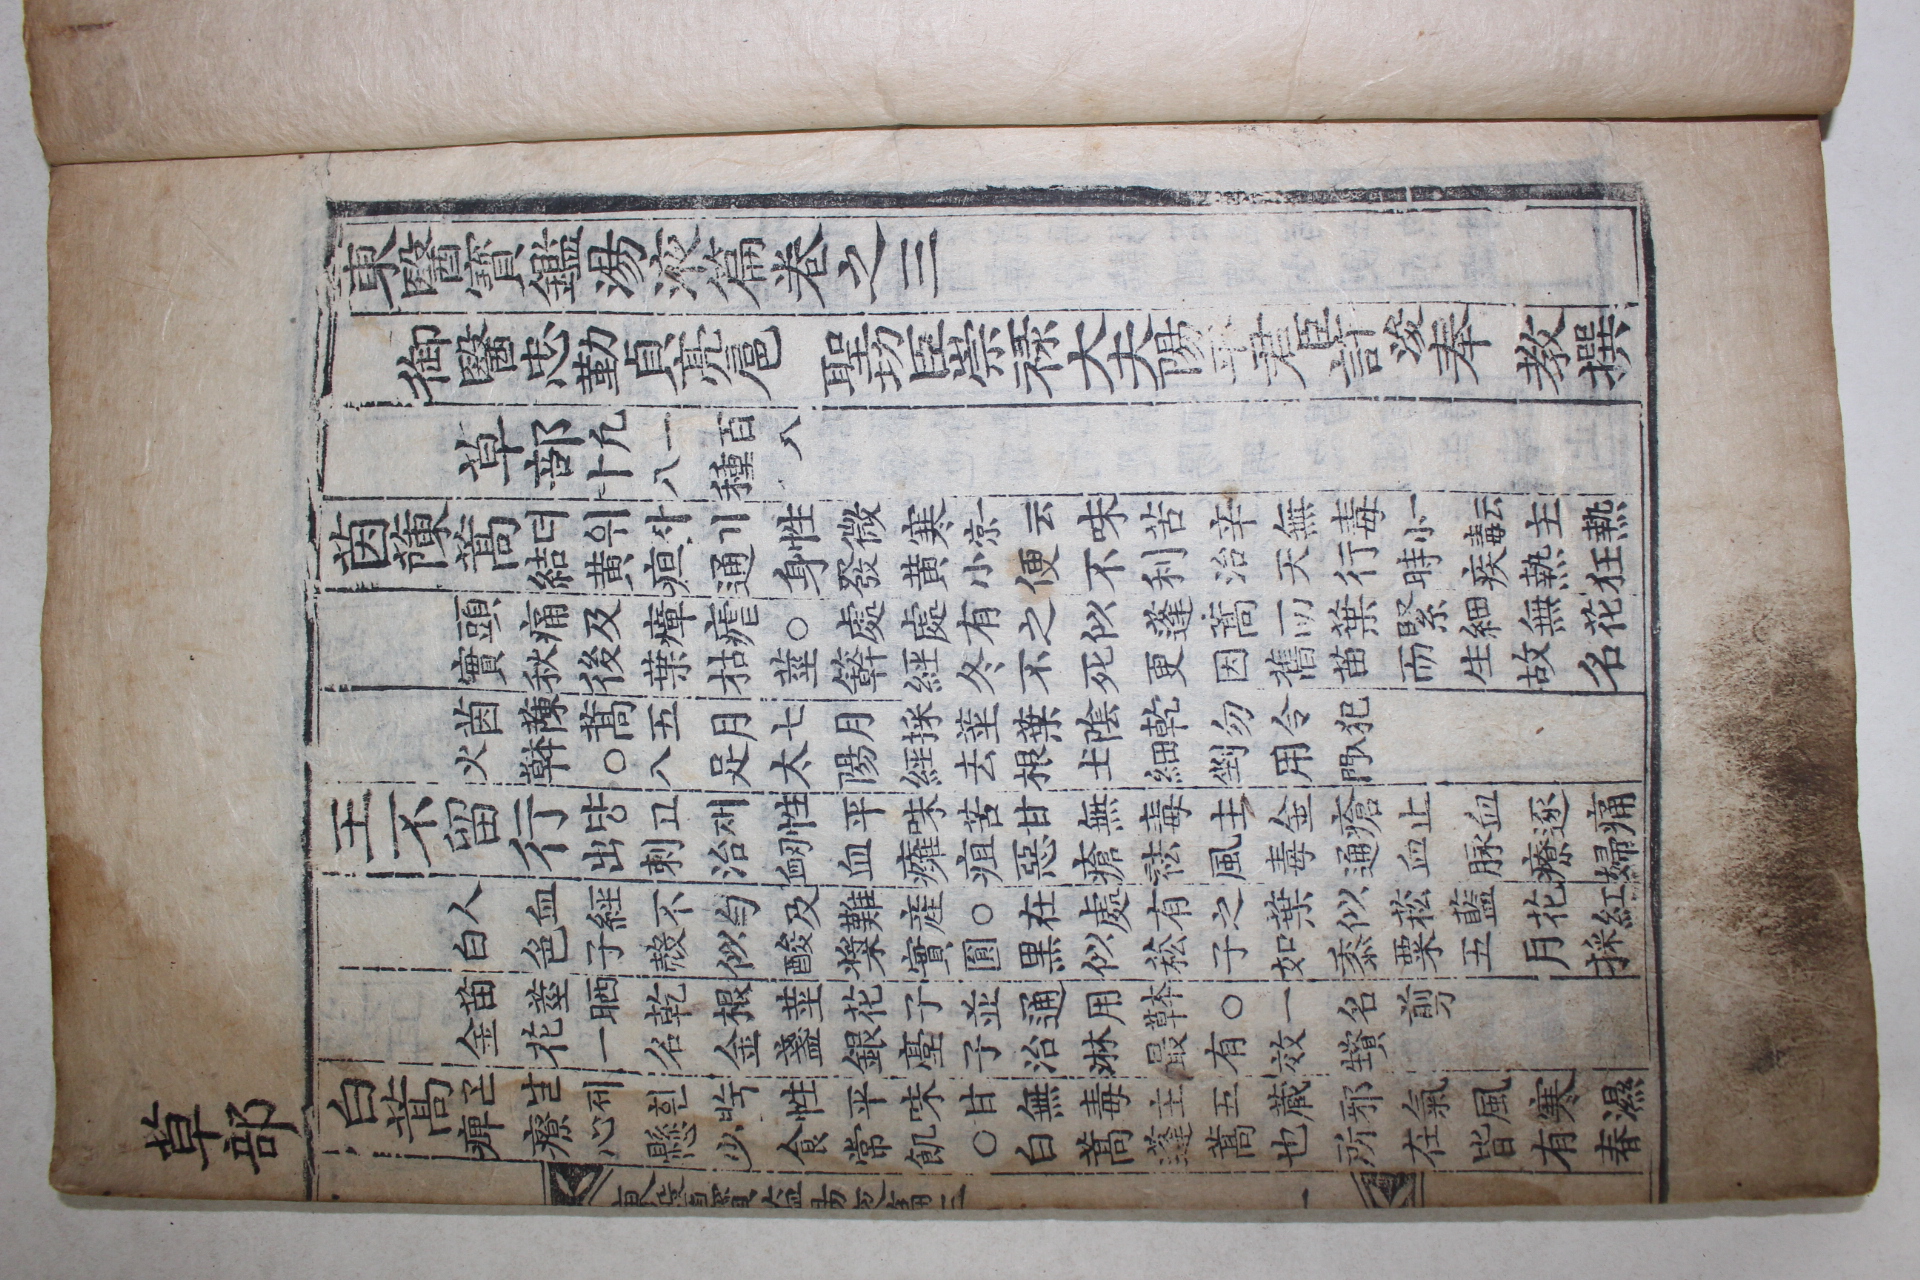 東醫寶鑑湯液篇卷之三
御醫忠勤貞亮扈　聖功臣崇祿大夫陽平君臣許浚奉　教撰
草部凡一百八
十八種
茵蔯蒿더위자기性微寒一云凉味苦辛無毒一云小毒主熱
結黃疸通身發黃小便不利治天行時疾熱狂
頭痛及瘴瘧○處處有之似蓬蒿而葉緊細無花
實秋後葉枯莖簳經冬不死更因舊苗而生故名
茵蔯蒿五月七月採莖葉陰乾勿令犯
火本草○入足太陽經去根土細剉用入門
王不留行댱고재性平味苦甘無毒主金瘡止血逐痛
出刺治衄血癰疽惡瘡祛風毒通血脉療婦
人血經不勻及難産○在處有之葉似菘藍花紅
白色子殼似酸漿實圓黑似菘子如黍粟五月採
苗莖晒乾根莖花子並通用本草○一名剪
金花一名金盞銀臺子治淋最有效資生
白蒿제흰ᄡᅮᆨ性平味甘無毒主五藏邪氣風寒濕
痺療心懸少食常飢○白蒿蓬蒿也所在皆有春
東醫寶鑑湯液篇三　一
草部